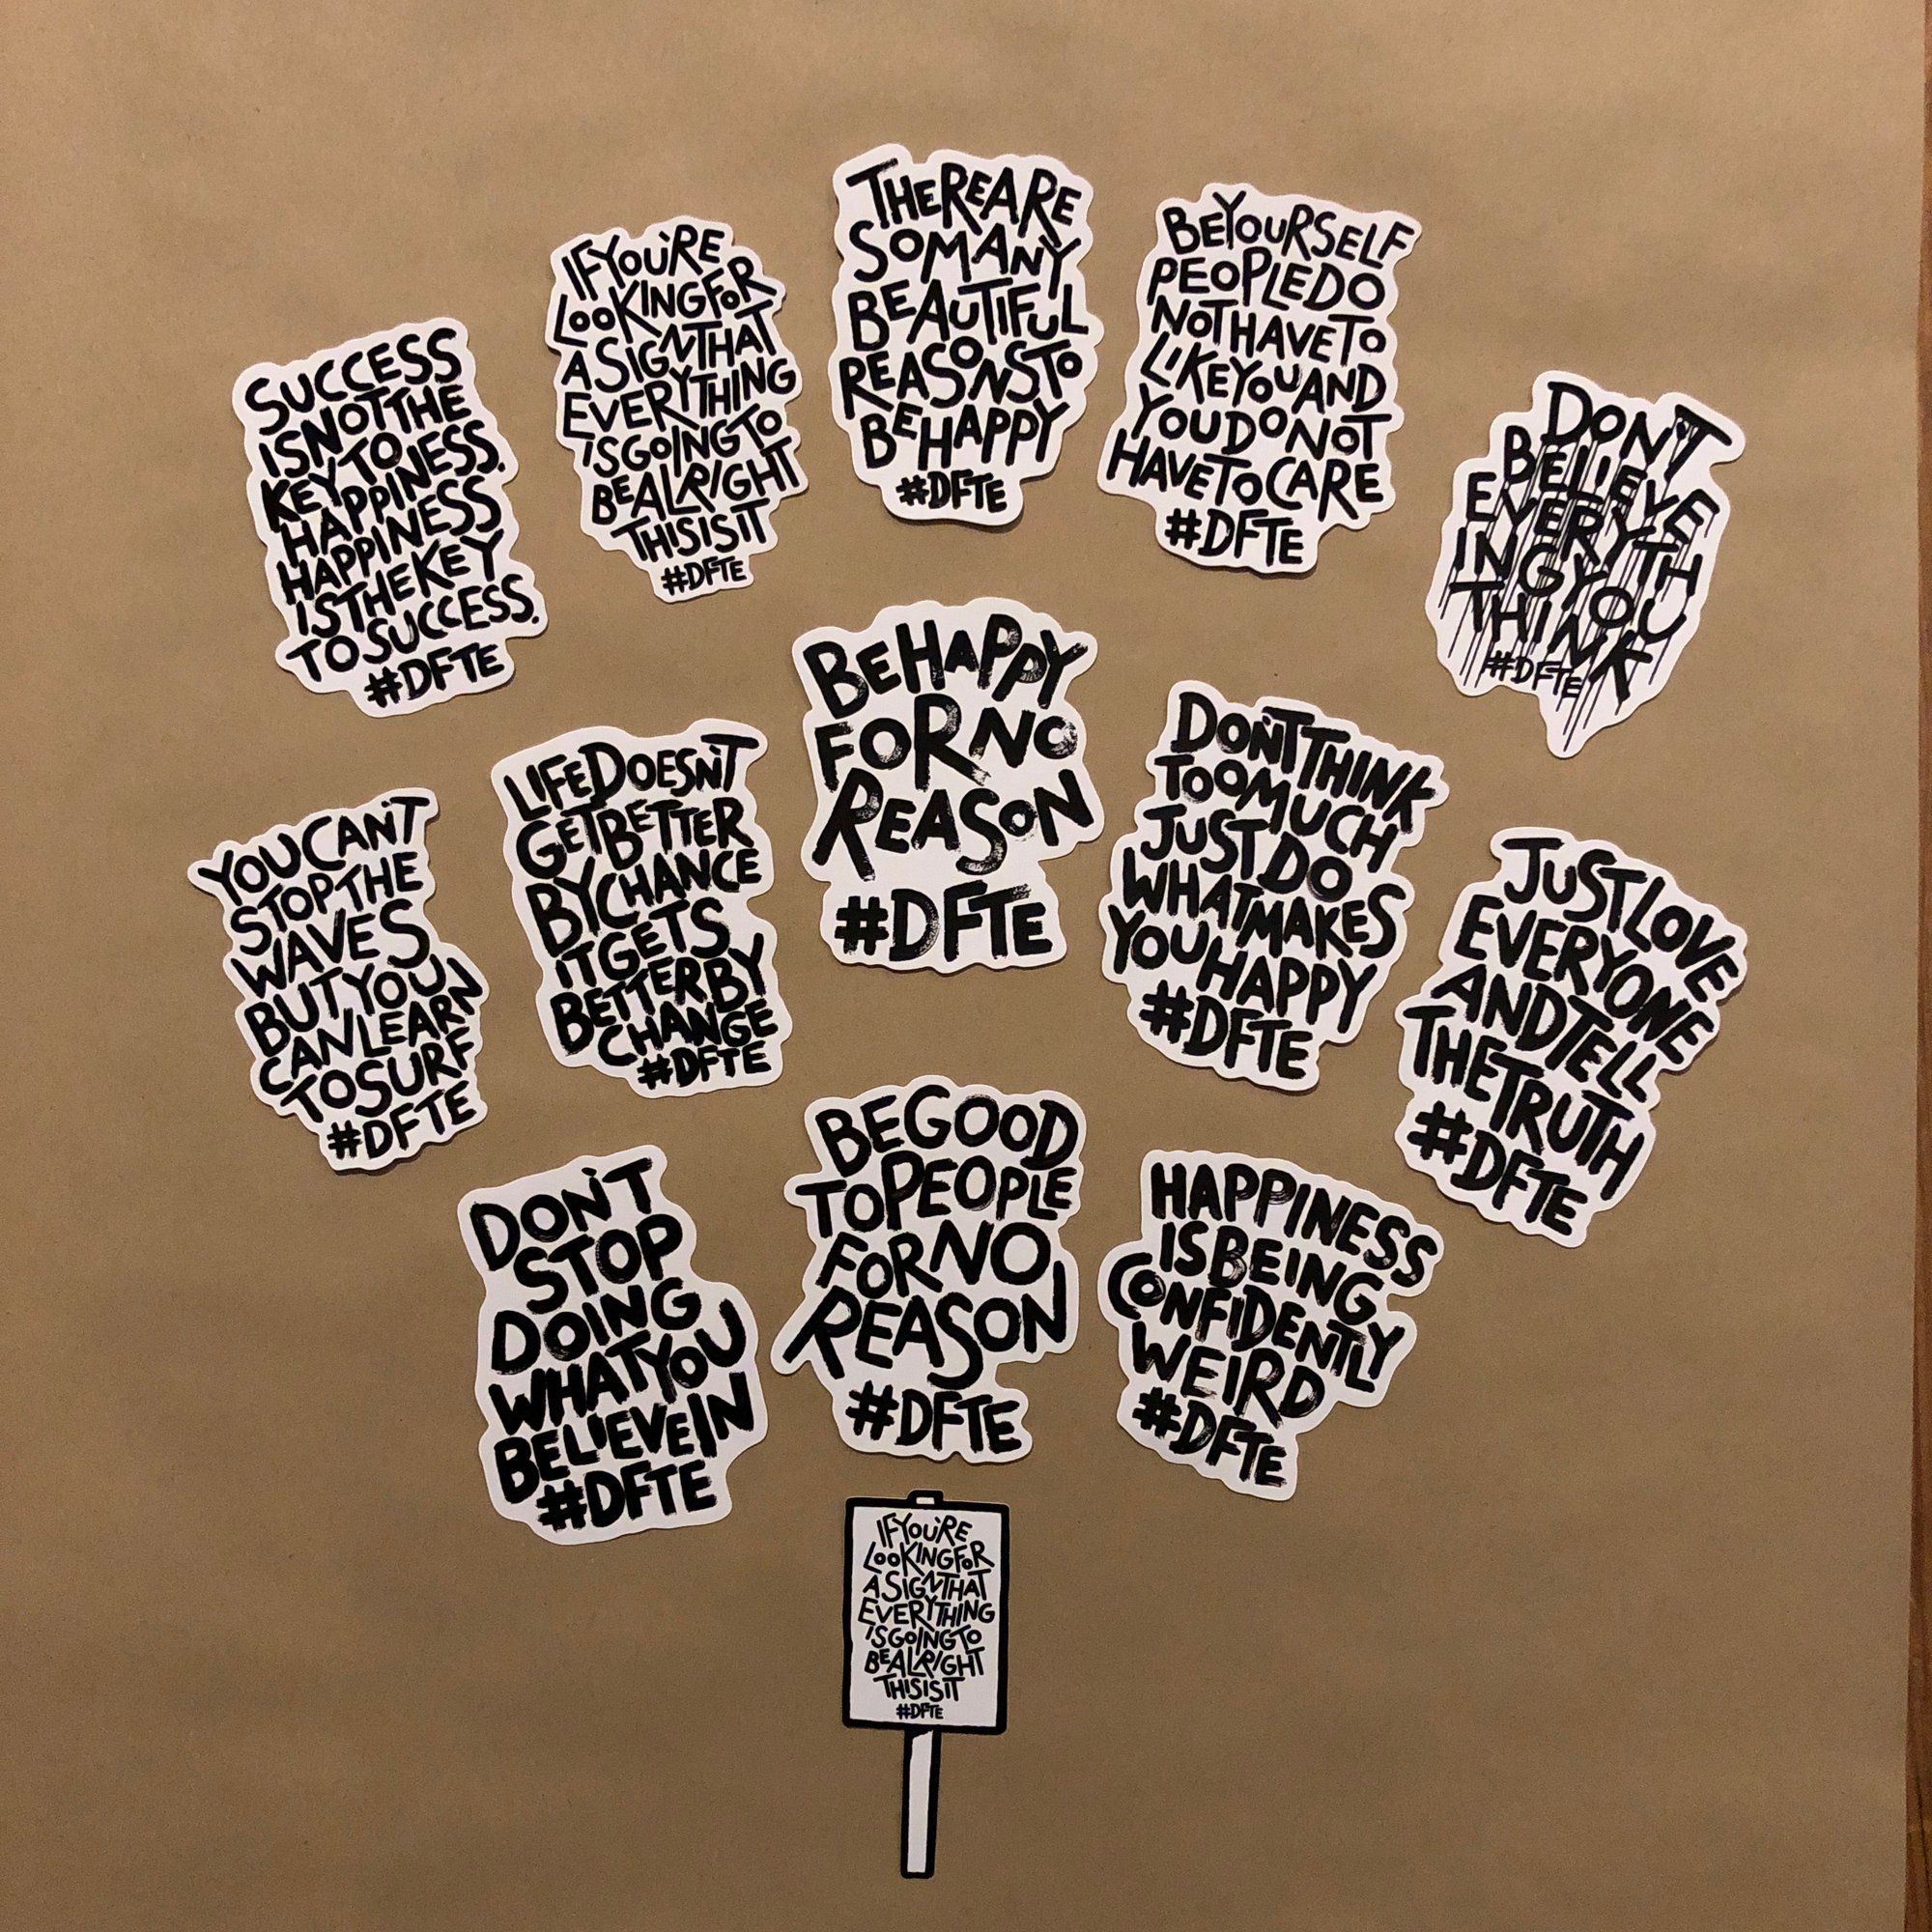 SUCCESS
ISNOTTHE
KEYTO
HAPPINESS.
HAPPINESS
ISTHEKEY
TOSUCCESS.
#DFTE
IFYOU'RE
LOOKINGFOR
ASIGNTHAT
EVERYTHING
ISGOINGTO
BEALRIGHT
THISISIT
#DFTE
THEREARE
SOMANY
BEAUTIFUL
REASONSTO
BEHAPPY
#DFTE
BEYOURSELF
PEOPLEDO
NOTHAVETO
LIKEYOUAND
YOUDONOT
HAVETOCARE
#DFTE
DON'T
BELIEVE
EVERYTH
INGYOU
THINK
#DFTE
YOUCAN'T
STOPTHE
WAVES
BUTYOU
CANLEARN
TOSURF
#DFTE
LIFEDOESN'T
GETBETTER
BYCHANCE
ITGETS
BETTERBY
CHANGE
#DFTE
BEHAPPY
FORNO
REASON
#DFTE
DON'TTHINK
TOOMUCH
JUSTDO
WHATMAKES
YOUHAPPY
#DFTE
JUSTLOVE
EVERYONE
ANDTELL
THETRUTH
#DFTE
DON'T
STOP
DOING
WHATYOU
BELIEVEIN
#DFTE
BEGOOD
TOPEOPLE
FORNO
REASON
#DFTE
HAPPINESS
ISBEING
CONFIDENTLY
WEIRD
#DFTE
IFYOU'RE
LOOKINGFOR
ASIGNTHAT
EVERYTHING
ISGOINGTO
BEALRIGHT
THISISIT
#DFTE